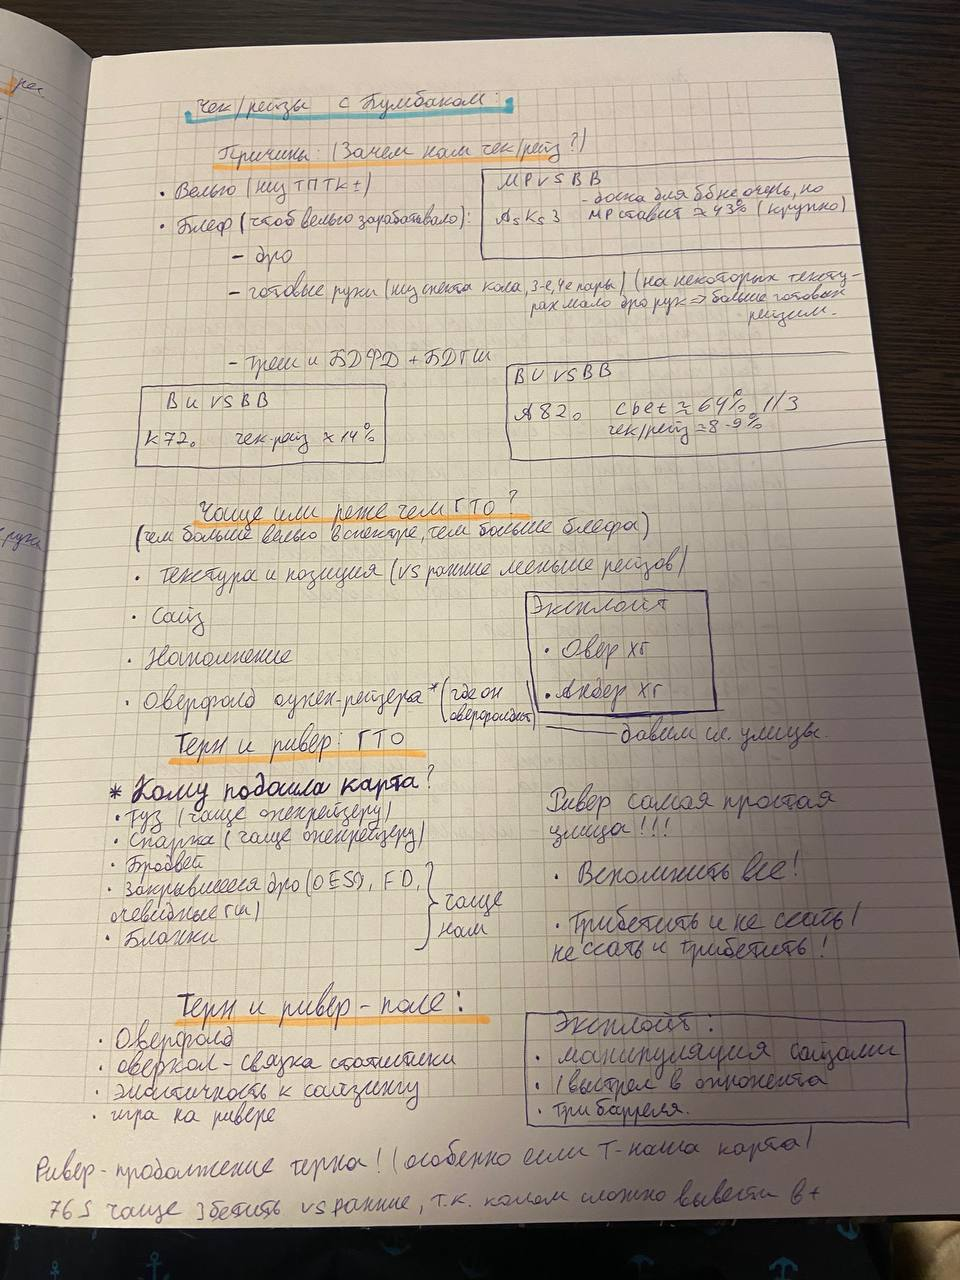 рес
Чек/рейзы с Бумбаком:
Причины: (Зачем нам чек/рейз?)
• Велью (низ ТПТК±)
MP vs BB
- доска для ббне очень, но
As Ks 3 MP ставит ≈ 43% (крупно)
• Блеф (чтоб велью зарабатывало):
- дро
- готовые руки (низ спектра кола, 3-е, 4е пары) (на некоторых тексту-
рах мало дро рук => больше готовых
рейзим.
- треш и БДФД + БДГШ
BU vs BB
K72o чек-рейз ≈ 14%
BU vs BB
A82o cbet ≈ 64% 1/3
чек/рейз ≈ 8-9%
Чаще или реже чем ГТО?
(чем больше велью в спектре, тем больше блефа)
руки
• Текстура и позиция (vs ранние меньше рейзов)
• Сайз
• Наполнение
• Оверфолд оупен-рейзера * (где он
оверфолдит)
Эксплойт
• Овер хг
• Андер хг
давим сл. улицы.
Терн и ривер: ГТО
* Кому подошла карта?
• Туз (чаще опенрейзеру)
• Спарка (чаще опенрейзеру)
• Бродвей
• Закрывшееся дро (OESD, FD,
очевидные гш)
• Бланки
чаще
нам
Ривер самая простая
улица!!!
• Вспомнить все!
• Трибетить и не ссать/
не ссать и трибетить!
Терн и ривер - поле:
• Оверфолд
• оверкол - связка статистики
• эластичность к сайзингу
• игра на ривере
Эксплойт:
• манипуляция сайзами
• 1 выстрел в оппонента
• три барреля.
Ривер - продолжение терна! (особенно если Т - наша карта)
76s чаще 3бетить vs ранние, т.к. колом сложно вывести в +